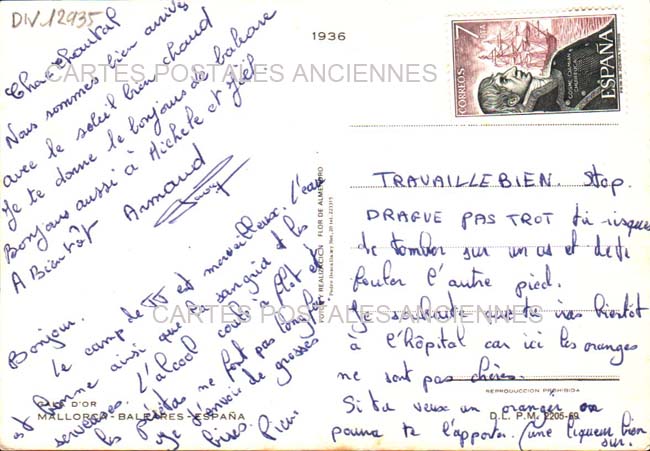 DIV.12935
1936
CORREOS
7
PTA
ESPAÑA
COSME DAMIAN CHURRUCA
CARTES POSTALES ANCIENNES
Chère Chantal
Nous sommes bien arrivés
avec le soleil bien chaud
Je te donne le bonjour de baleare
Bonjour aussi à Michele et Joël
A Bientôt
Armand
Bonjour.
Le camp de est merveilleux. L'eau
est bonne ainsi que la sangria et les
serveuses. L'alcool coule à flot et
les pésétas ne font pas long feu.
Je t'envoie de grosses
bises.
FOTO Y REALIZACION FLOR DE ALMENDRO
TRAVAILLE BIEN. Stop.
DRAGUE PAS TROT tu risques
de tomber sur un os et de ti
fouler l'autre pied.
Je souhaite que tu iras bientôt
à l'hôpital car ici les oranges
ne sont pas chères.
Si tu veux un oranger on
pourra te l'apporter. (une liqueur bien
sur.
CARTES POSTALES ANCIENNES
D'OR
MALLORCA - BALEARES - ESPAÑA
REPRODUCCION PROHIBIDA
D. L. P. M. 2205-69